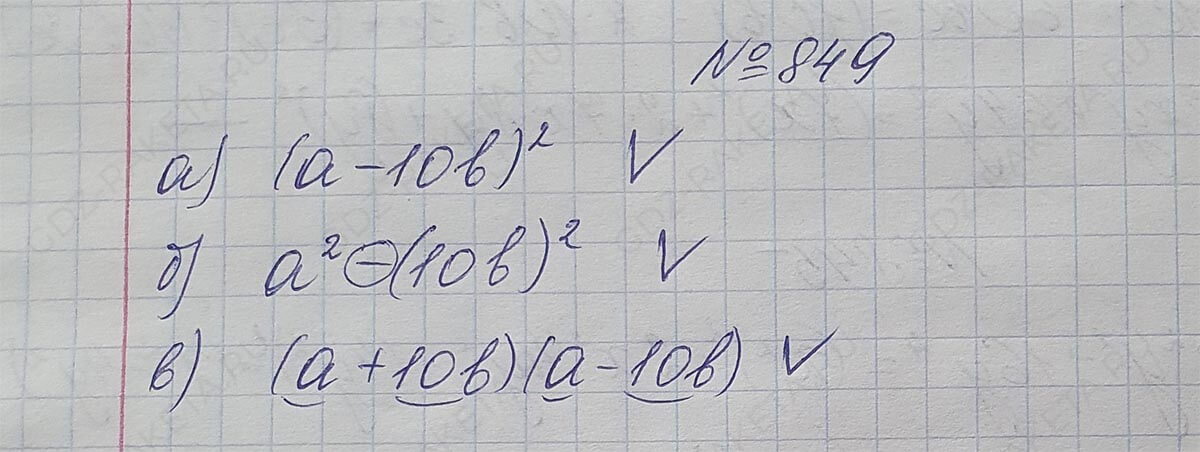 №849
а) (a-10b)² V
б) a²⊖(10b)² V
в) (a+10b)(a-10b) V